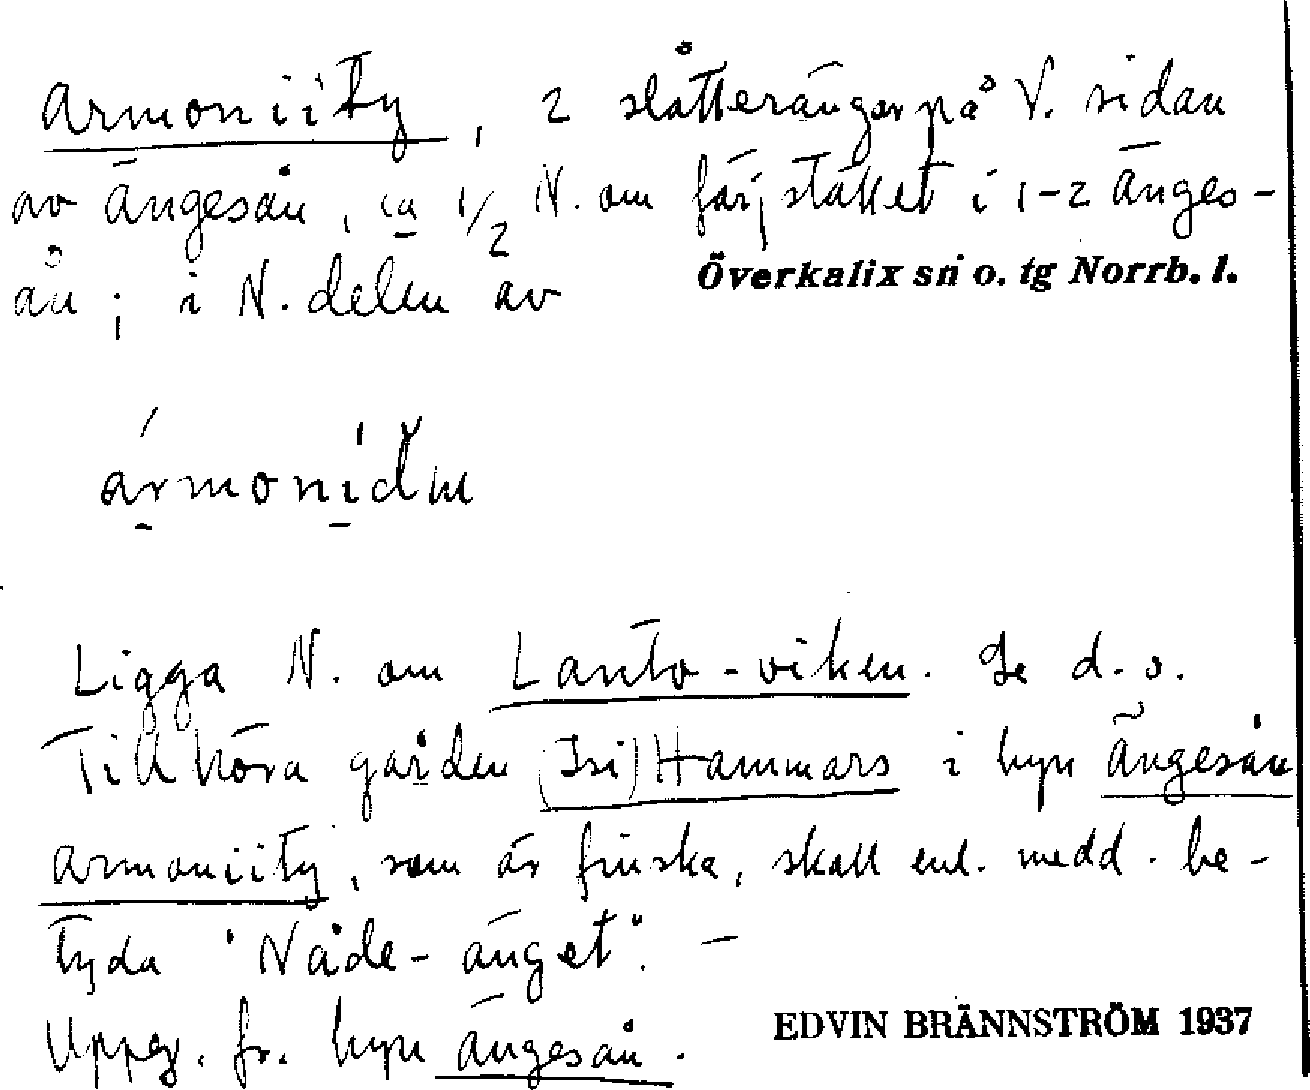 Armoniity, 2 slåtterängar på V. sidan
av Ängesån, ca 1/2 N. om färjstället i 1-2 Änges-
ån; i N. delen av
Överkalix sn o. tg Norrb. l.
Ligga N. om Lanto-viken. Se d. o.
Tillhöra gården (Isi)Hammars i byn Ängesån
Armoniity, som är finska, skall enl. medd. be-
tyda "Nåde-änget". -
Uppg. fr. byn Ängesån.
EDVIN BRÄNNSTRÖM 1937